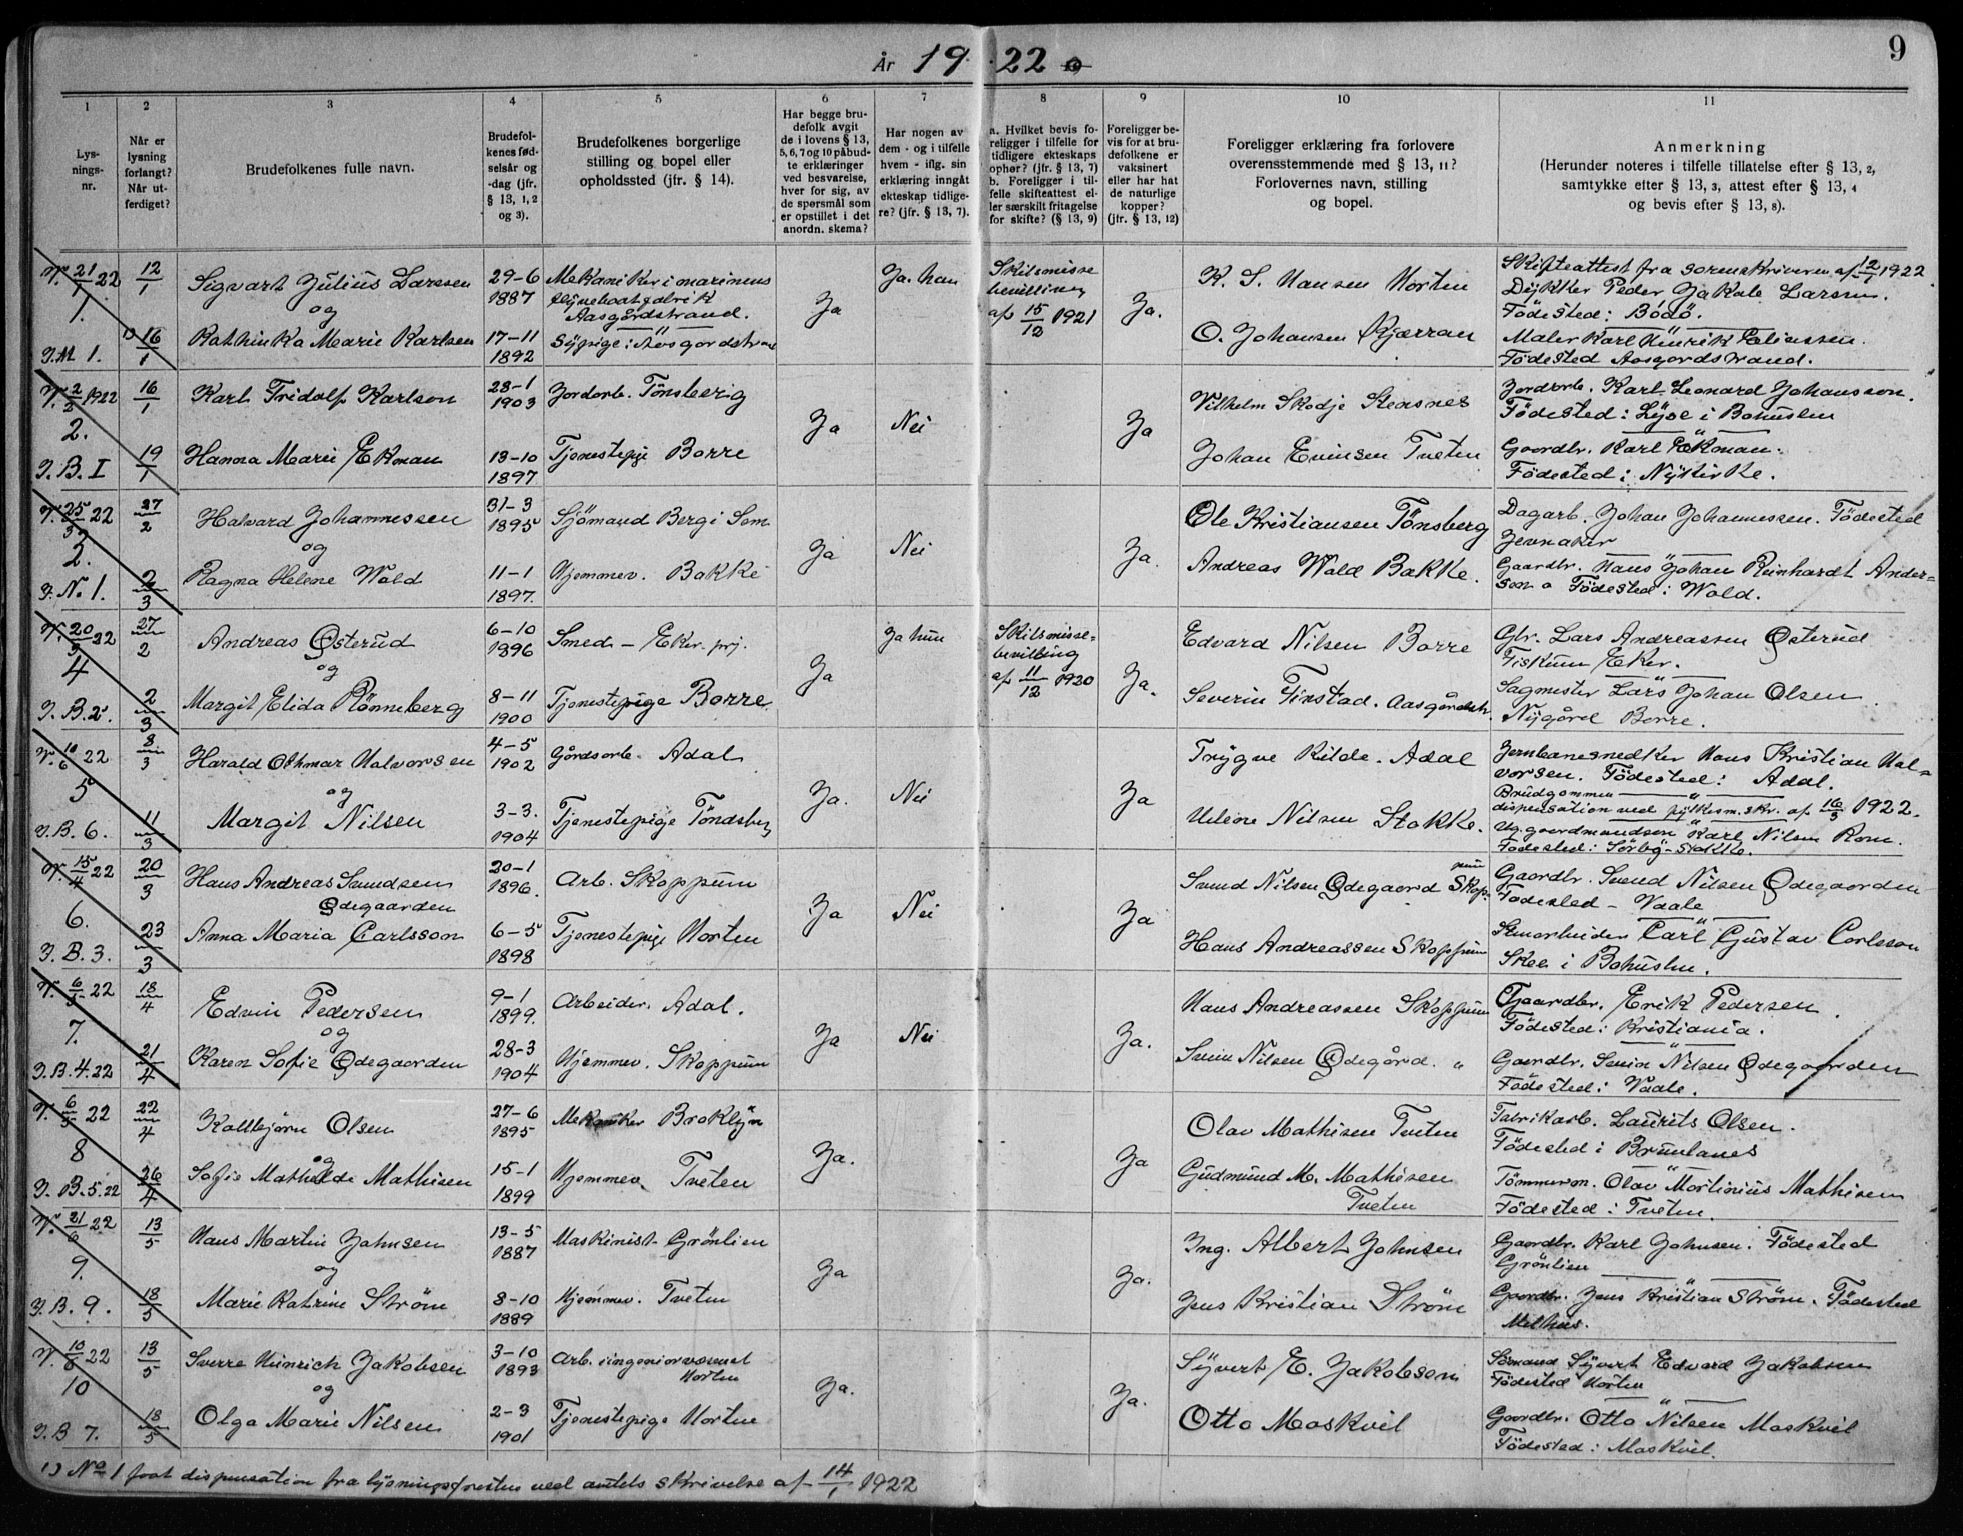 9
År 1922
1 2 3 4 5 6 7 8 9 10 11
Lys-
nings-
nr.
Når er
lysning
forlangt?
Når ut-
ferdiget?
Brudefolkenes fulle navn.
Brudefol-
kenes fød-
selsår og
-dag (jfr.
§ 13, 1, 2
og 3).
Brudefolkenes borgerlige
stilling og bopel eller
opholdssted (jfr. § 14).
Har begge bru-
defolk avgit
de i lovens § 13,
5, 6, 7 og 10 påbud-
te erklæringer
ved besvarelse,
hver for sig, av
de spørsmål som
er opstillet i det
anordn. skema?
Har nogen av
dem - og i tilfelle
hvem - iflg. sin
erklæring inngåt
ekteskap tidlige-
re? (jfr. § 13, 7).
a. Hvilket bevis fo-
religger i tilfelle for
tidligere ekteskaps
ophør? (jfr. § 13, 7)
b. Foreligger i til-
felle skifteattest el-
ler særskilt fritagelse
for skifte? (§ 13, 9)
Foreligger be-
vis for at bru-
defolkene er
vaksinert
eller har hat
de naturlige
kopper?
(jfr. § 13, 12)
Foreligger erklæring fra forlovere
overensstemmende med § 13, 11?
Forlovernes navn, stilling
og bopel.
Anmerkning
(Herunder noteres i tilfelle tillatelse efter § 13, 2,
samtykke efter § 13, 3, attest efter § 13, 4
og bevis efter § 13, 8).
V. 21/1 22
1.
J.M 1.
12/1
1) 16/1
Sigvart Julius Larsen
og
Kathinka Marie Karlsen
29-6
1887
17-11
1892
Mekaniker i marinens
flyvebaatfabrik
Aasgårdstrand.
Sypige: Aasgordstrand
Ja
Ja. han
Skilsmisse
bevilling
af 15/12 1921
Ja.
K. S. Hansen Horten
O. Johansen Kjærran
Skifteattest fra sorenskriveren af 12/1 1922.
Dykker Peder Jakob Larsen.
Födested: Bodö.
Maler Karl Henrik Eliassen.
Födested Aasgordstrand.
V. 2/2 1922
2.
J.B.I
16/1
19/1
Karl Fridolf Karlson
Hanna Marie Ekman
28-1
1903
13-10
1897
Jordarb. Tönsberg
Tjenestepige Borre
Ja
Nei
Ja
Vilhelm Skodje Stensnes
Johan Evensen Tveten
Jordarb. Karl Leonard Johansson.
Födested: Lyse i Bohuslen
Gaardbr. Karl Ekman.
Födested: Nykirke.
V. 25/3 22
J. No 1.
27/2
2/3
Halvard Johannessen
og
Ragna Helene Wold
31-3
1895
11-1
1897.
Sjömand Berg i Sem
Hjemmev. Bakke
Ja
Nei
Ja.
Ole Kristiansen Tönsberg
Andreas Wold Bakke.
Dagarb. Johan Johannessen. Födested
Jevnaker
Gaardbr. Hans Johan Reinhardt Ander=
son Födested: Wold.
V. 20/3 22
4
J.B.2.
27/2
2/3
Andreas Østerud
og
Margit Elida Rönneberg
6-10
1896
8-11
1900
Smed - Eker. prj.
Tjenestepige Borre.
Ja
Ja hun
Skilsmisse=
bevilling
af 11/12 1920
Ja.
Edvard Nilsen Borre
Severin Finstad. Aasgårdstr.
Gbr. Lars Andreassen Østerud
Fiskum Eker.
Sagmester Lars Johan Olsen
Nygård Borre.
V. 10/6 22
5
J.B.6.
8/3
11/3
Harald Othmar Halvorsen
og
Margit Nilsen
4-5
1902
3-3.
1904
Gårdsarb. Adal
Tjenestepige Töndsberg
Ja.
Nei
Ja
Trygve Kilde. Adal
Helene Nilsen Stokke.
Jernbanesnedker Hans Kristian Hal=
vorsen. Födested: Adal.
Brudgommen
dispensation ved fylkesm. skr. af 16/3 1922.
Ug. gaardmandsön Karl Nilsen Rom.
Födested: Sörby-Stokke.
V. 15/4 22
6.
J.B.3.
20/3
23/3
Hans Andreas Svendsen
Ødegaarden
Anna Maria Carlsson
20-1
1896.
6-5
1898
Arb. Skoppum
Tjenestepige Horten
Ja
Nei
Ja
Svend Nilsen Ødegaard Skop-
pum
Hans Andreassen Skoppum
Gaardbr. Svend Nilsen Ødegaarden
Födested - Vaale
Stenarbeider Carl Gustav Carlsson
Skee i Bohuslen.
V. 6/5 22
7.
J.B.4.22
18/4
21/4
Edvin Pedersen
og
Karen Sofie Ødegaarden
9-1
1899.
28-3
1904
Arbeider. Adal.
Hjemmev. Skoppum
Ja
Nei
Ja.
Hans Andreassen Skoppum
Svein Nilsen Ødegård. "
Gaardbr. Erik Pedersen
Födested: Kristiania.
Gaardbr. Svein Nilsen Ødegaarden
Födested: Vaale.
V. 6/5 22
8
J.B.5.22
22/4
26/4
Kolbjørn Olsen
og
Sofie Mathilde Mathisen
27-6
1895
15-1
1899
Mekaniker Broklyn
Hjemmev. Tveten
Ja.
Ja
Olav Mathisen Tveten
Gudmund M. Mathisen
Tveten
Fabrikarb. Laurits Olsen.
Födested i Brunlanes
Tömmerm. Olav Martinius Mathisen
Födested: Tveten.
V. 21/6 22
9.
J.B.9.
13/5
18/5
Hans Martin Johnsen
og
Marie Katrine Ström
13-5
1887
8-10
1889
Maskinist. Grönlien
Hjemmev. Tveten
Ja
Ja.
Ing. Albert Johnsen
Jens Kristian Ström
Gaardbr. Karl Johnsen. Födested
Grönlien
Gaardbr. Jens Kristian Ström. Födested
Melhus.
V. 10/6 22
10
J.B 7.
13/5
18/5
Sverre Heinrich Jakobsen
og
Olga Marie Nilsen
3-10
1893
2-3
1901
Arb. i ingeniørvæsenet
Horten
Tjenestepige Horten
Ja.
Ja.
Syvert E. Jakobsen
Otto Maskvil
Sömand Syvert Edvard Jakobsen
Födested Horten
Gaardbr. Otto Nilsen Maskvil
Födested: Maskvil.
1) No 1 faat dispensation fra lysningsfristen ved amtets skrivelse af 14/1 1922